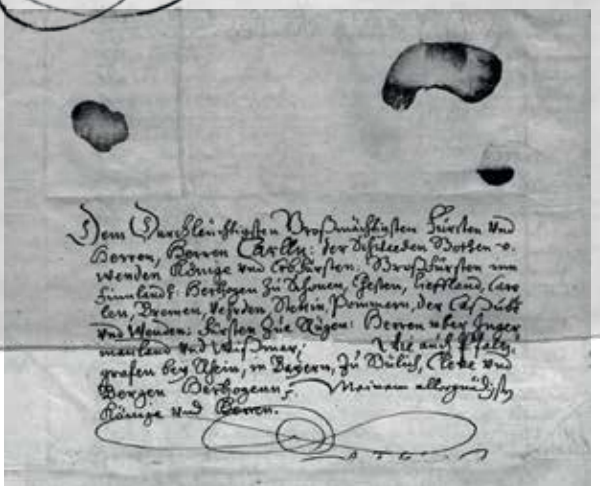 Dem Durchleüchtigsten Großmächtigsten Fürsten Vnd
Herren, Herren Carlln: der Schweden Gothen v.
wenden Könige vnd Erbfürsten: Großfürsten inn
Finnlandt: Hertzogen Zu Schonen, Ehesten, Liefflandt, Care
len, Bremen, Vehrden, Stettin, Pommern, der Caßuben
vnd Wenden: Fürsten Zue Rügen: Herren über Inger
manland vnd Wißmar; Wie auch Pfaltz
grafen bey Rhein, in Bayern, Zu Gülich, Cleve vnd
Bergen Hertzogenn; Meinem allergnädigsten
Könige vnd Herren.